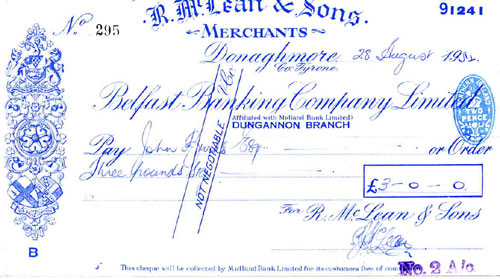 R. McLean & Sons.
91241
No 295
MERCHANTS
Donaghmore, 28 August 1952
Co. Tyrone.
Belfast Banking Company Limited
Affiliated with Midland Bank Limited
DUNGANNON BRANCH
NOT NEGOTIABLE
TWO PENCE
Pay John Esq or Order
Three Pounds
£3-0-0.
For R. McLean & Sons
B
No. 2 A/c.
This cheque will be collected by Midland Bank Limited for its customers free of commission